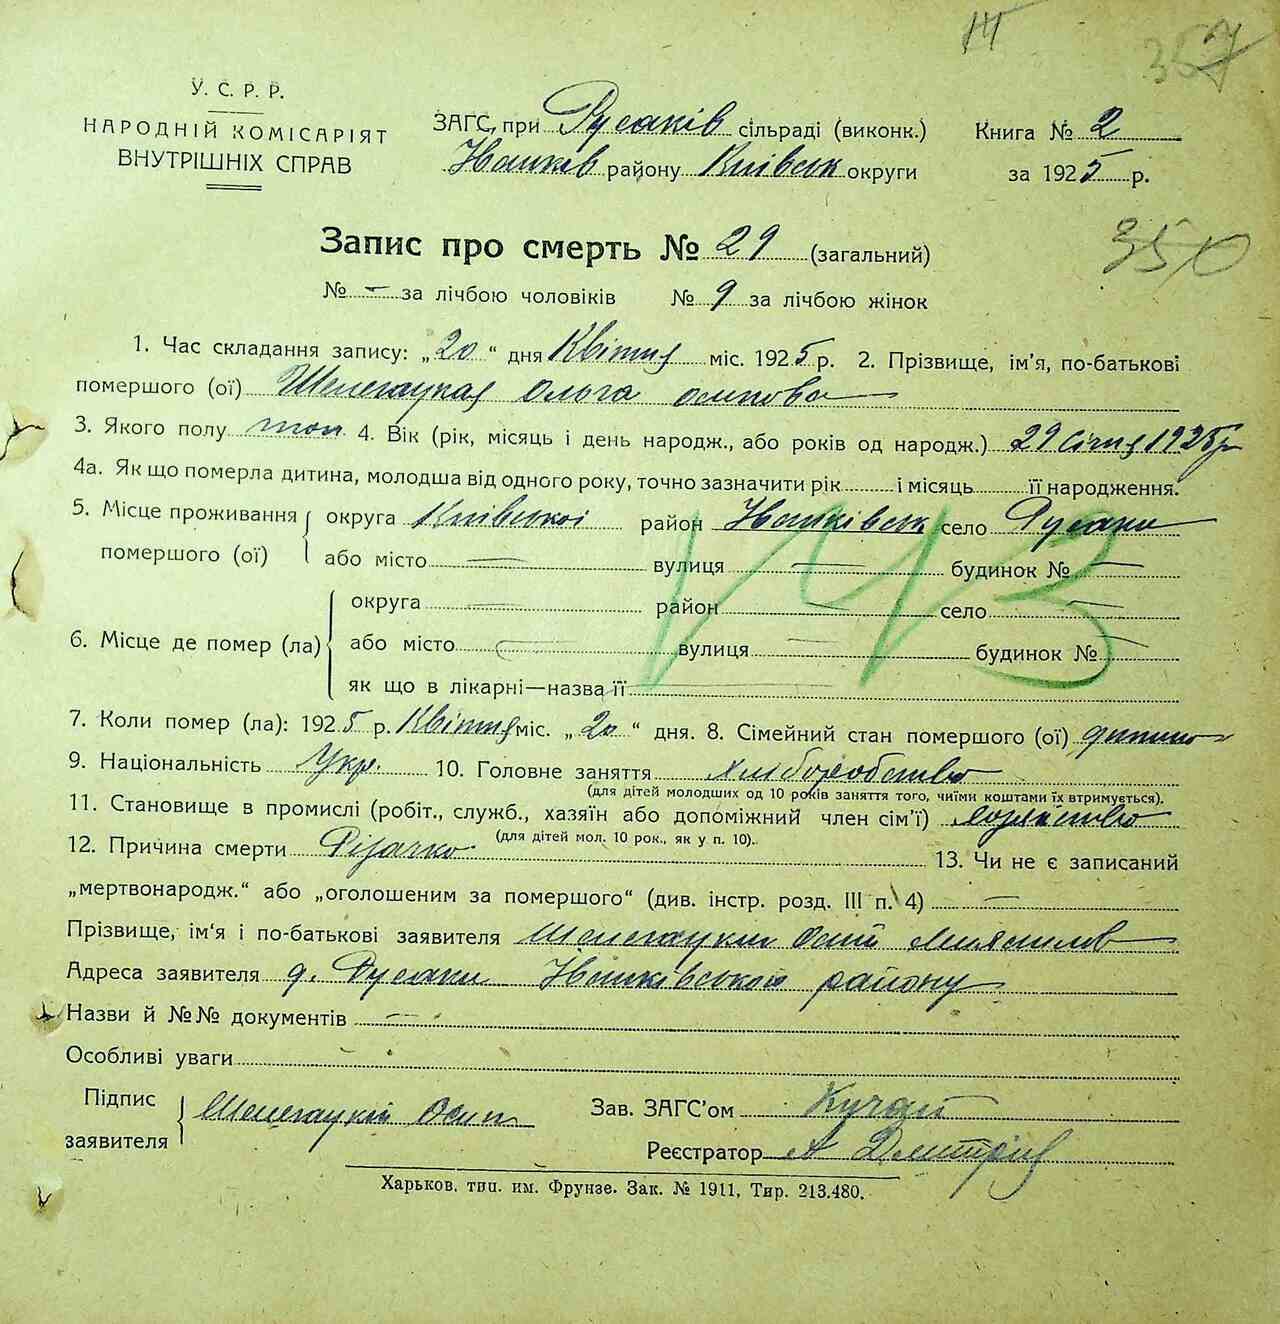 357
У. С. Р. Р.
НАРОДНІЙ КОМІСАРІЯТ
ВНУТРІШНІХ СПРАВ
ЗАГС, при Русаків сільраді (виконк.)
району Київськ округи
Книга № 2
за 1925 р.
350
Запис про смерть № 29 (загальний)
№ – за лічбою чоловіків № 9 за лічбою жінок
1. Час складання запису: „20" дня Квітня міс. 1925 р. 2. Прізвище, ім'я, по-батькові
помершого (ої) Ольга осипова
3. Якого полу жін. 4. Вік (рік, місяць і день народж., або років од народж.) 29 січня 1925 р
4а. Як що померла дитина, молодша від одного року, точно зазначити рік і місяць її народження.
5. Місце проживання помершого (ої) округа Київської район село Русанів
або місто — вулиця — будинок № —
113
6. Місце де помер (ла) округа — район — село —
або місто — вулиця — будинок № —
як що в лікарні—назва її
7. Коли помер (ла): 1925 р. Квітня міс. „20" дня. 8. Сімейний стан помершого (ої) дитина
9. Національність Укр. 10. Головне заняття хліборобство
(для дітей молодших од 10 років заняття того, чиїми коштами їх втримується).
11. Становище в промислі (робіт., служб., хазяїн або допоміжний член сім'ї)
(для дітей мол. 10 рок., як у п. 10).
12. Причина смерти Різачка 13. Чи не є записаний
„мертвонародж." або „оголошеним за помершого" (див. інстр. розд. III п. 4) —
Прізвище, ім'я і по-батькові заявителя
Адреса заявителя району
Назви й №№ документів —
Особливі уваги
Підпис заявителя Осип
Зав. ЗАГС'ом
Реєстратор А
Харьков, тип. им. Фрунзе. Зак. № 1911, Тир. 213.480.